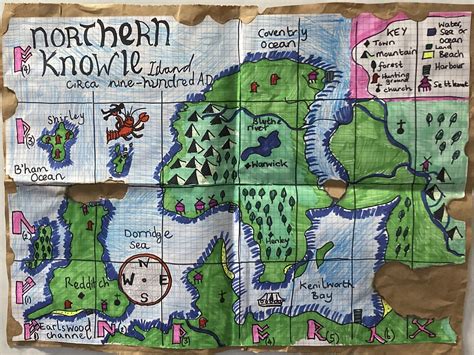 NORTHERN
KNOWLE Island
CIRCA nine-hundred AD
Coventry
Ocean
KEY
Town
mountain
forest
Hunting
ground
church
Water,
Sea or
Ocean
Land
Beach
Harbour
Settlement
Shirley
B'ham
Ocean
Blythe
river
Warwick
Dorridge
Sea
Henley
Redditch
N
W E
S
Kenilworth
Bay
Earlswood
channel